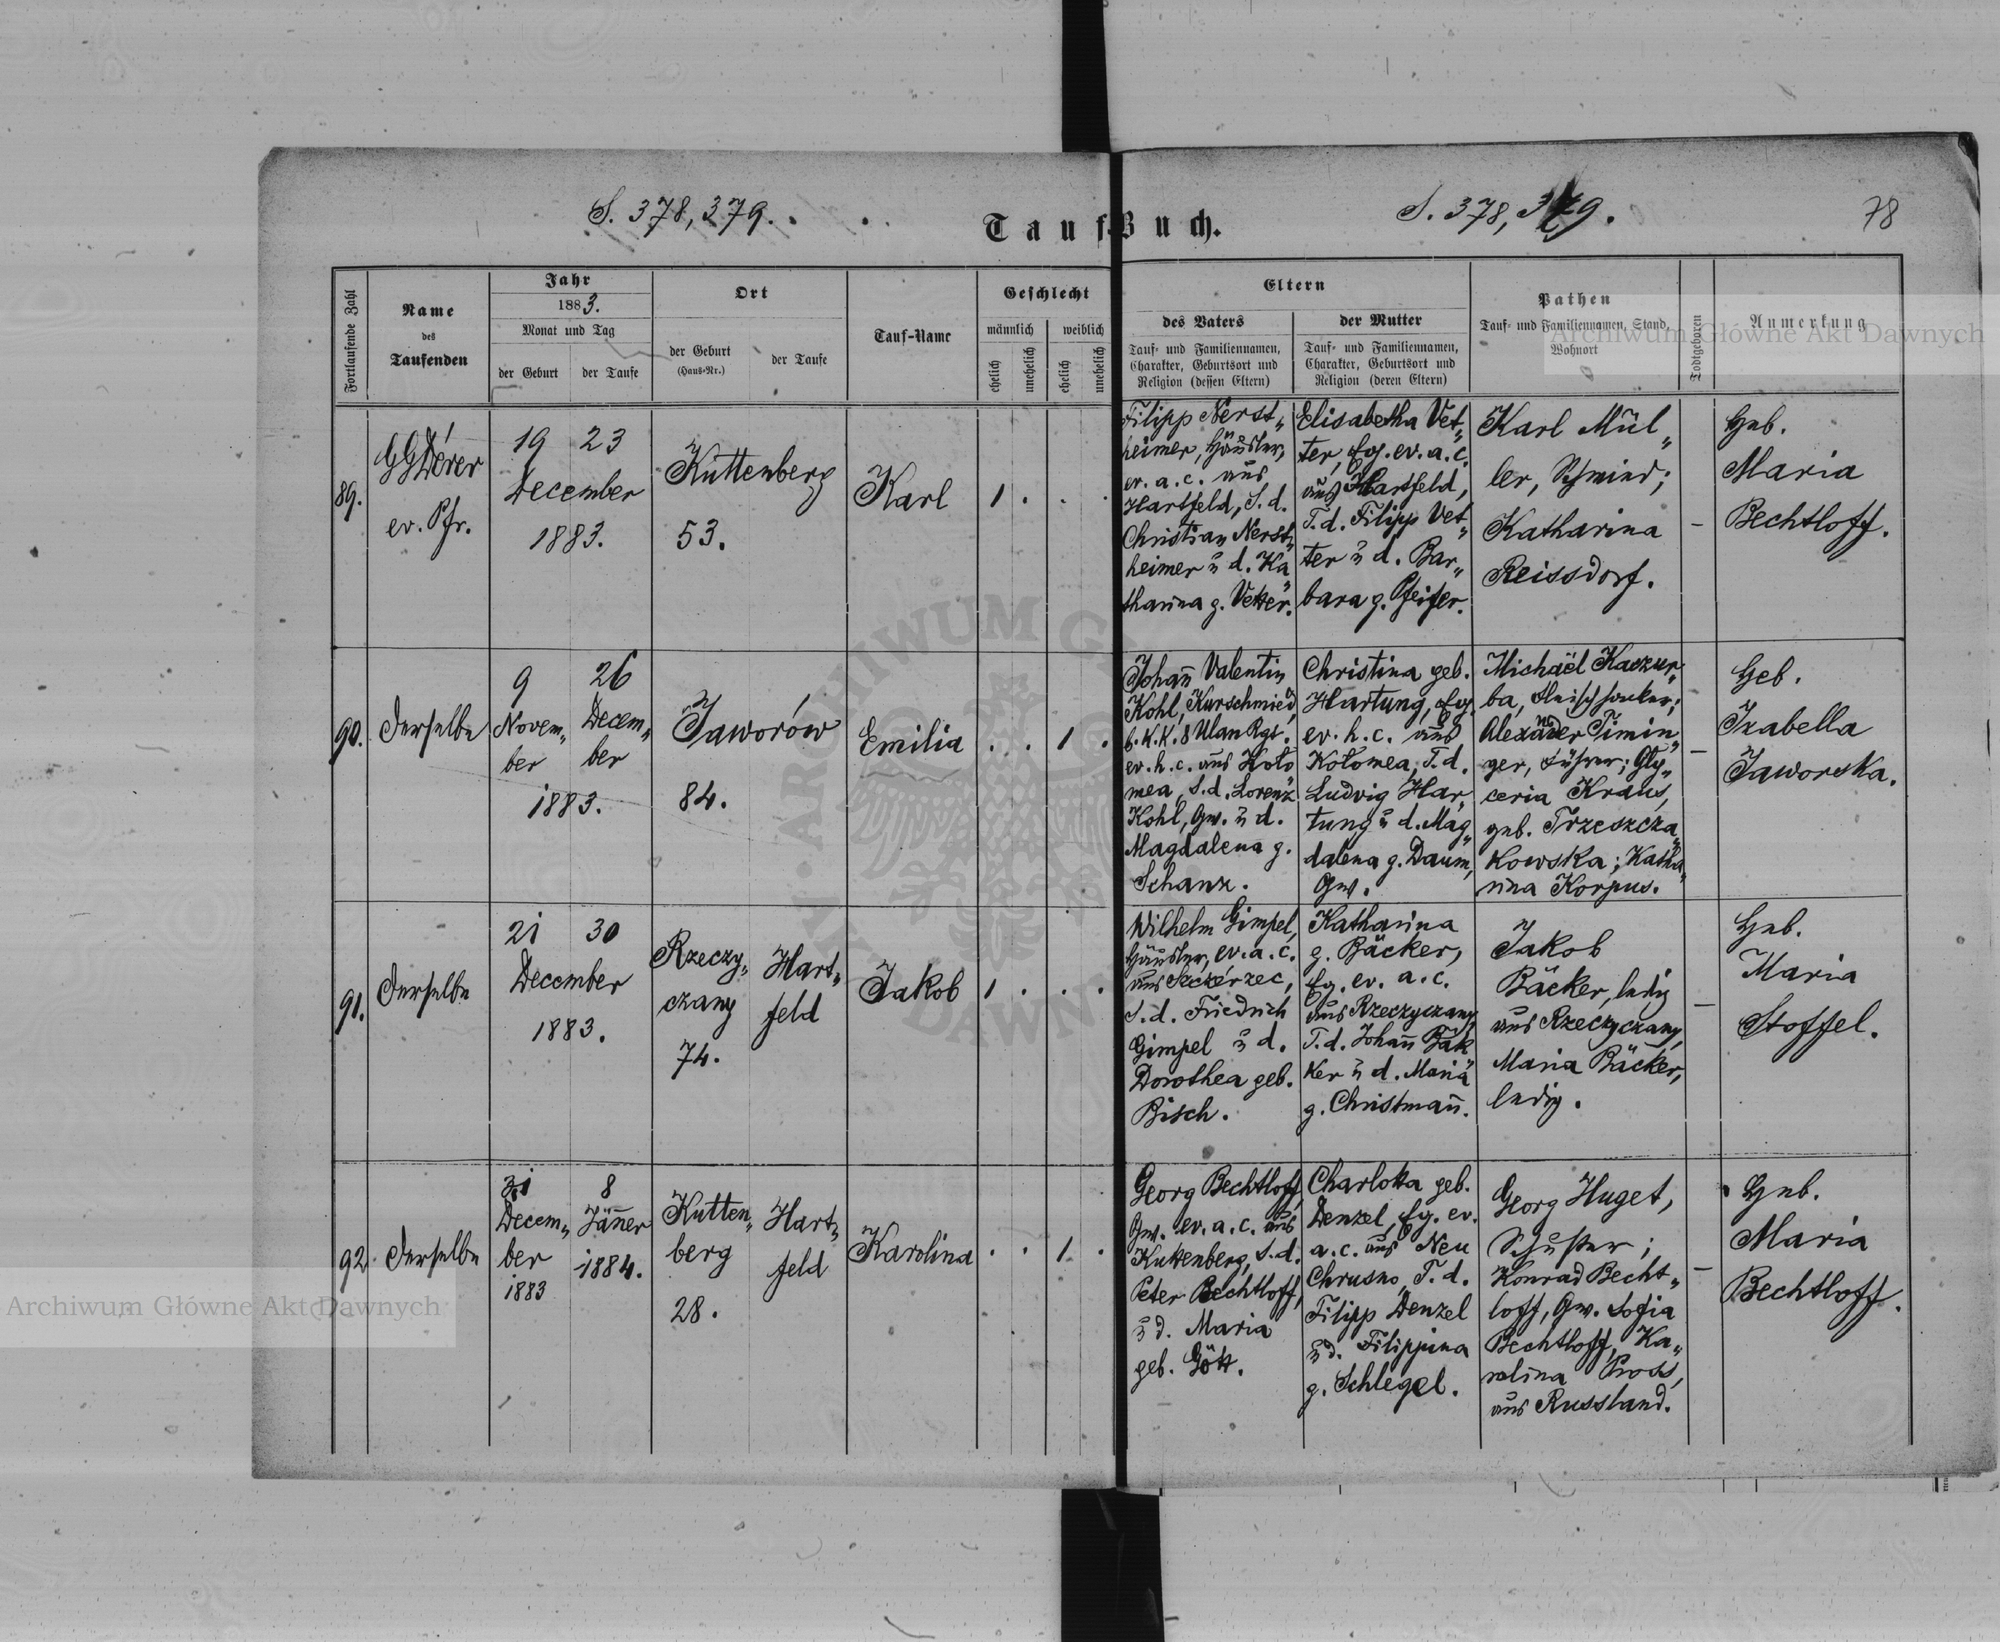 S. 378, 379.
S. 378, 379.
78
Tauf-Buch.
Fortlaufende Zahl
Name
des
Taufenden
Jahr
1883.
Monat und Tag
der Geburt
der Taufe
Ort
der Geburt
(Haus-Nr.)
der Taufe
Tauf-Name
Geschlecht
männlich
weiblich
ehelich
unehelich
ehelich
unehelich
Eltern
des Vaters
Tauf- und Familiennamen,
Charakter, Geburtsort und
Religion (dessen Eltern)
der Mutter
Tauf- und Familiennamen,
Charakter, Geburtsort und
Religion (deren Eltern)
Pathen
Tauf- und Familiennamen, Stand,
Wohnort
Todtgeboren
Anmerkung
89.
GGDérer
ev. Pfr.
19 23
December
1883.
Kuttenberg
53.
Karl
1 . . .
Filipp Nerst„
heimer, Häusler,
ev. a. c. aus
Hartfeld, S. d.
Christian Nerst„
heimer u d. Ka„
tharina g. Vetter.
Elisabetha Vet„
ter, Eg. ev. a. c.
aus Hartfeld,
T. d. Filipp Vet„
ter u d. Bar„
bara g. Pfeifer.
Karl Mül„
ler, Schmied;
Katharina
Reissdorf.
–
Heb.
Maria
Bechtloff.
90.
Derselbe
9
Novem„
ber
26
Decem„
ber
1883.
Jaworów
84.
Emilia
. . 1 .
Johañ Valentin
Kohl, Kurschmied
b. K. K. 8 Ulan Rgt.
ev. h. c. aus Koło
mea, S. d. Lorenz
Kohl, Gw. u d.
Magdalena g.
Schanz.
Christina geb.
Hartung, Eg.
ev. h. c. aus
Kołomea, T. d.
Ludvig Har„
tung u d. Mag„
dalena g. Daum,
Gw.
Michaël Kaczur„
ba, Fleischhauker;
Alexander Timin„
ger, Führer; Gly„
ceria Kraus,
geb. Trzeszcza„
kowska; Katha„
rina Korpus.
–
Heb.
Izabella
Jaworska.
91.
Derselbe
21 30
December
1883.
Rzeczy„
czany
74.
Hart„
feld
Jakob
1 . . .
Wilhelm Gimpel,
Häusler, ev. a. c.
aus Szczerzec,
S. d. Friedrich
Gimpel u d.
Dorothea geb.
Bisch.
Katharina
g. Bäcker,
Eg. ev. a. c.
aus Rzeczyczany,
T. d. Johañ Bäk„
ker u d. Maria
g. Christmañ.
Jakob
Bäcker, ledig
aus Rzeczyczany,
Maria Bäcker,
ledig.
–
Heb.
Maria
Stoffel.
92.
Derselbe
31
Decem„
ber
1883
8
Jäñer
1884.
Kutten„
berg
28.
Hart„
feld
Karolina
. . 1 .
Georg Bechtloff,
Gw. ev. a. c. aus
Kuttenberg, S. d.
Peter Bechtloff,
u d. Maria
geb. Gött.
Charlotta geb.
Denzel, Eg. ev.
a. c. aus Neu
Chrusno, T. d.
Filipp Denzel
u d. Filippina
g. Schlegel.
Georg Huget,
Schuster;
Konrad Becht„
loff, Gw. Sofia
Bechtloff, Ka„
rolina Pross,
aus Russland.
–
Heb.
Maria
Bechtloff.
Archiwum Główne Akt Dawnych
Archiwum Główne Akt Dawnych